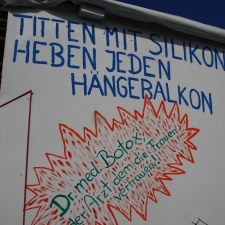 TITTEN MIT SILIKON
HEBEN JEDEN
HÄNGERALKON
Dr. med. Botox,
der Arzt dem die Frauen
vertrauen!